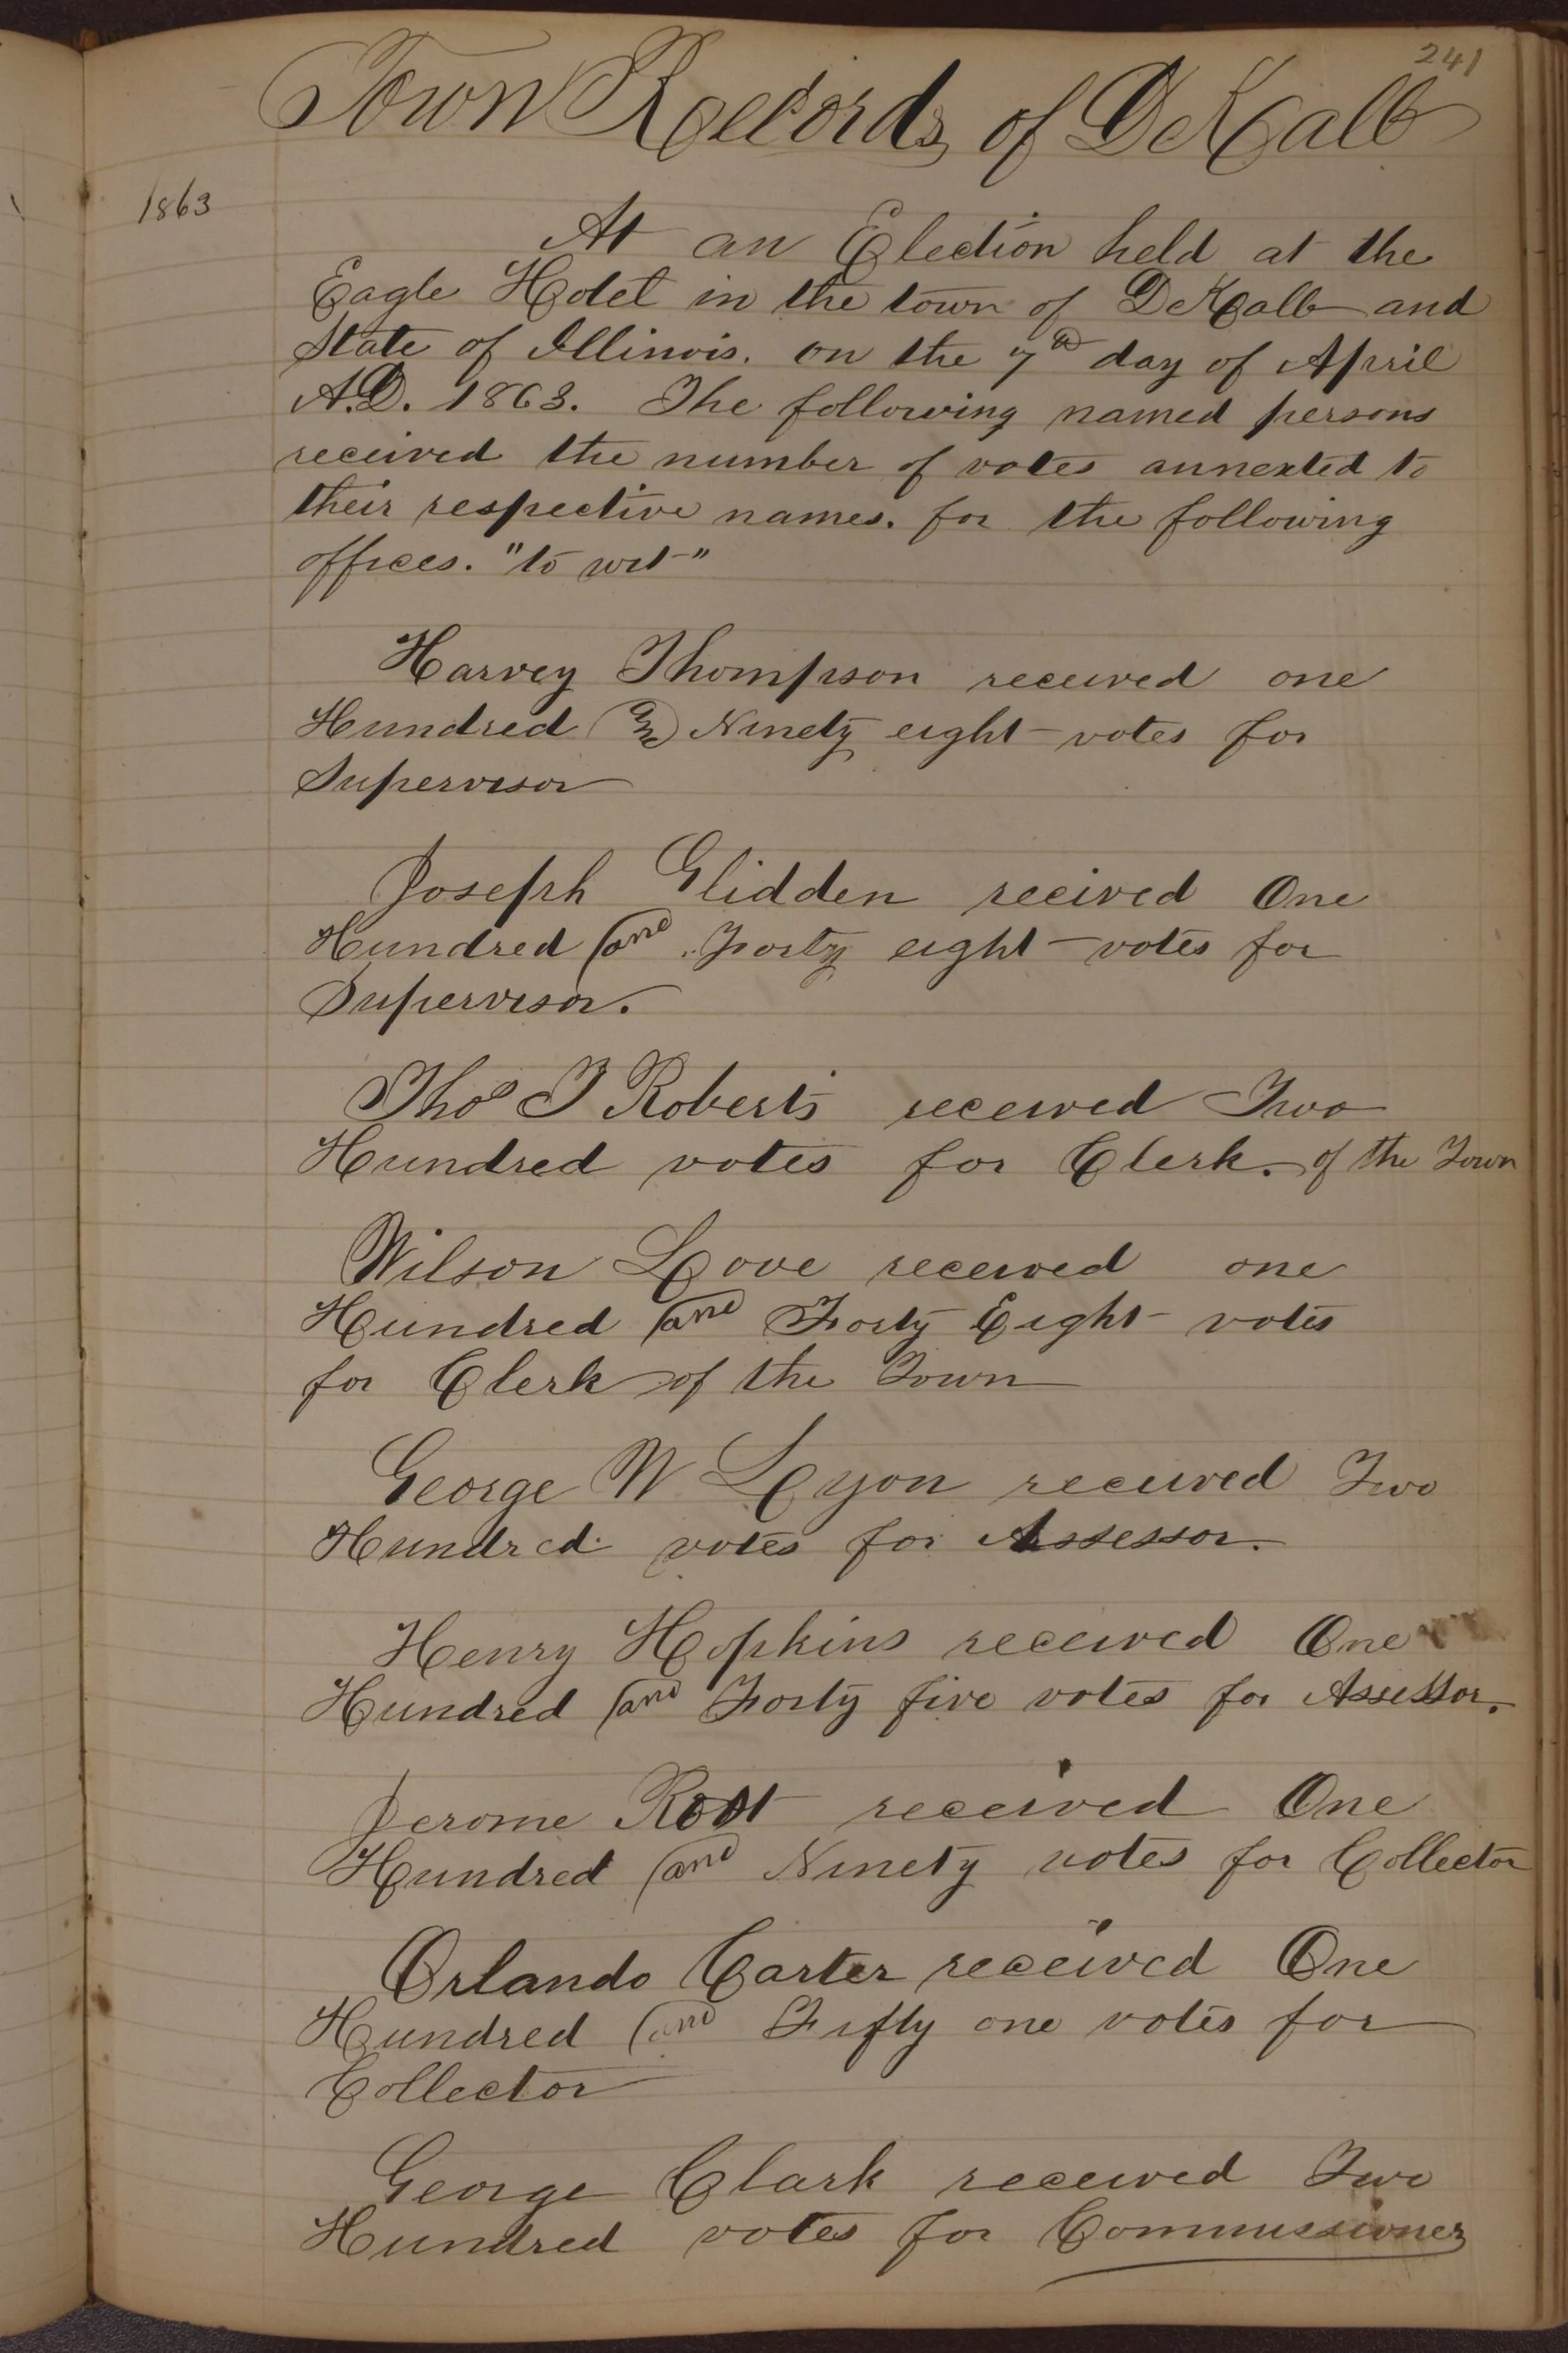 241
Town Records of DeKalb
1863
At an Election held at the
Eagle Hotel in the town of DeKalb and
State of Illinois. on the 7th day of April
A.D. 1863. The following named persons
received the number of votes annexted to
their respective names. for the following
offices. "to wit"
Harvey Thompson received one
Hundred and Ninety eight votes for
Supervisor
Joseph Glidden recived One
Hundred and Forty eight votes for
Supervisor.
Thos J Roberts received Two
Hundred votes for Clerk. of the Town
Wilson Love received one
Hundred and Forty Eight votes
for Clerk of the Town
George W Lyon received Two
Hundred votes for Assessor.
Henry Hopkins received One
Hundred and Forty five votes for Assessor.
Jerome Root received One
Hundred and Ninety votes for Collector
Orlando Carter received One
Hundred and Fifty one votes for
Collector
George Clark received Two
Hundred votes for Commissioner